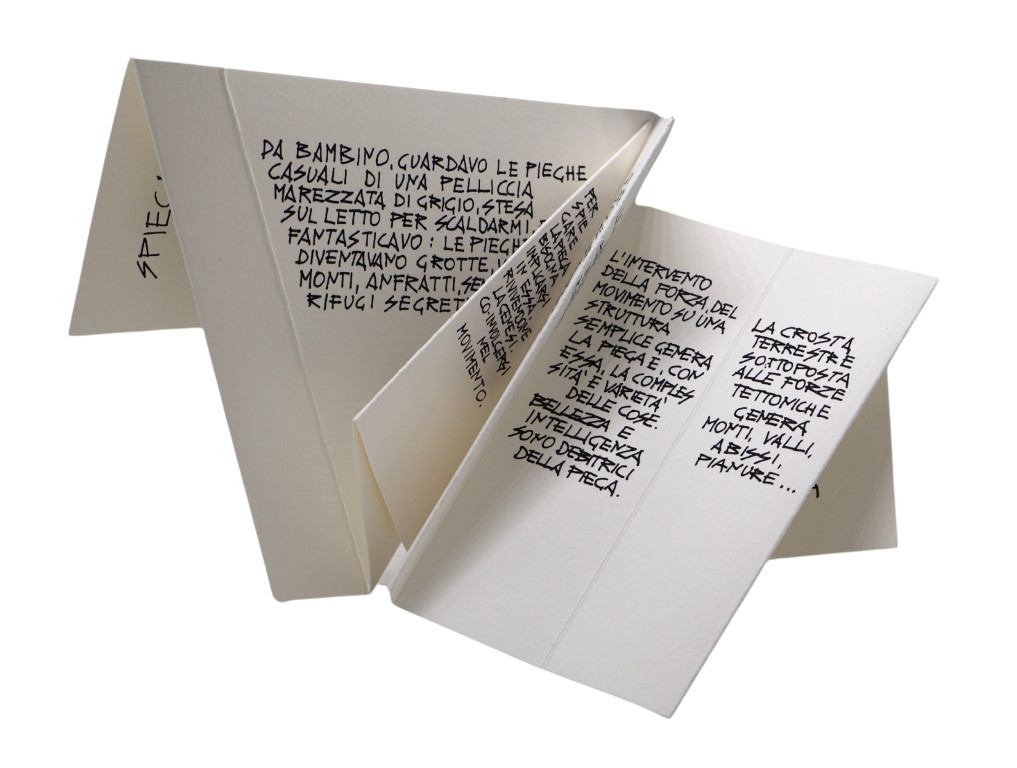 SPIEG
DA BAMBINO, GUARDAVO LE PIEGHE
CASUALI DI UNA PELLICCIA
MAREZZATA DI GRIGIO, STESA
SUL LETTO PER SCALDARMI, E
FANTASTICAVO: LE PIEGHE
DIVENTAVANO GROTTE, V
MONTI, ANFRATTI, SEN
RIFUGI SEGRET
PER
SPIE
GARE
LA PIEGA
BISOGNA
IMPLICARSI
IN ESSA,
RIVIVENDONE
LA GENESI.
CO-INVOLGERSI
NEL
MOVIMENTO.
L'INTERVENTO
DELLA FORZA, DEL
MOVIMENTO SU UNA
STRUTTURA
SEMPLICE GENERA
LA PIEGA E, CON
ESSA, LA COMPLES
SITÀ E VARIETÀ
DELLE COSE.
BELLEZZA E
INTELLIGENZA
SONO DEBITRICI
DELLA PIEGA.
LA CROSTA
TERRESTRE
SOTTOPOSTA
ALLE FORZE
TETTONICHE
GENERA
MONTI, VALLI,
ABISSI,
PIANURE...
A